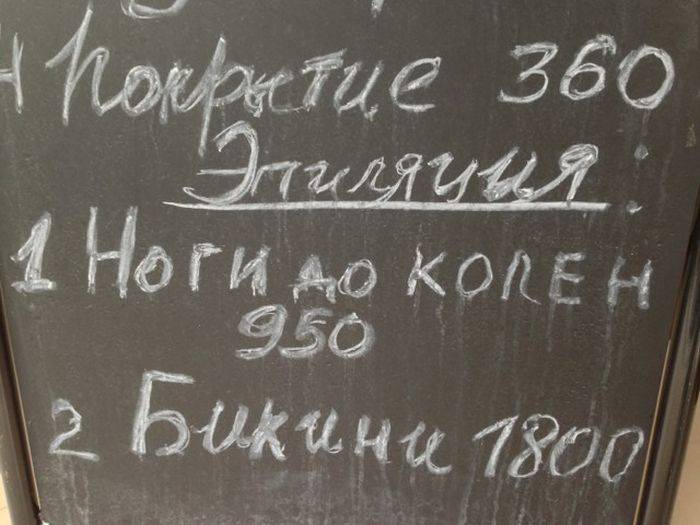 Покрытие 360
Эпиляция:
1 Ноги до колен
950
2 Бикини 1800